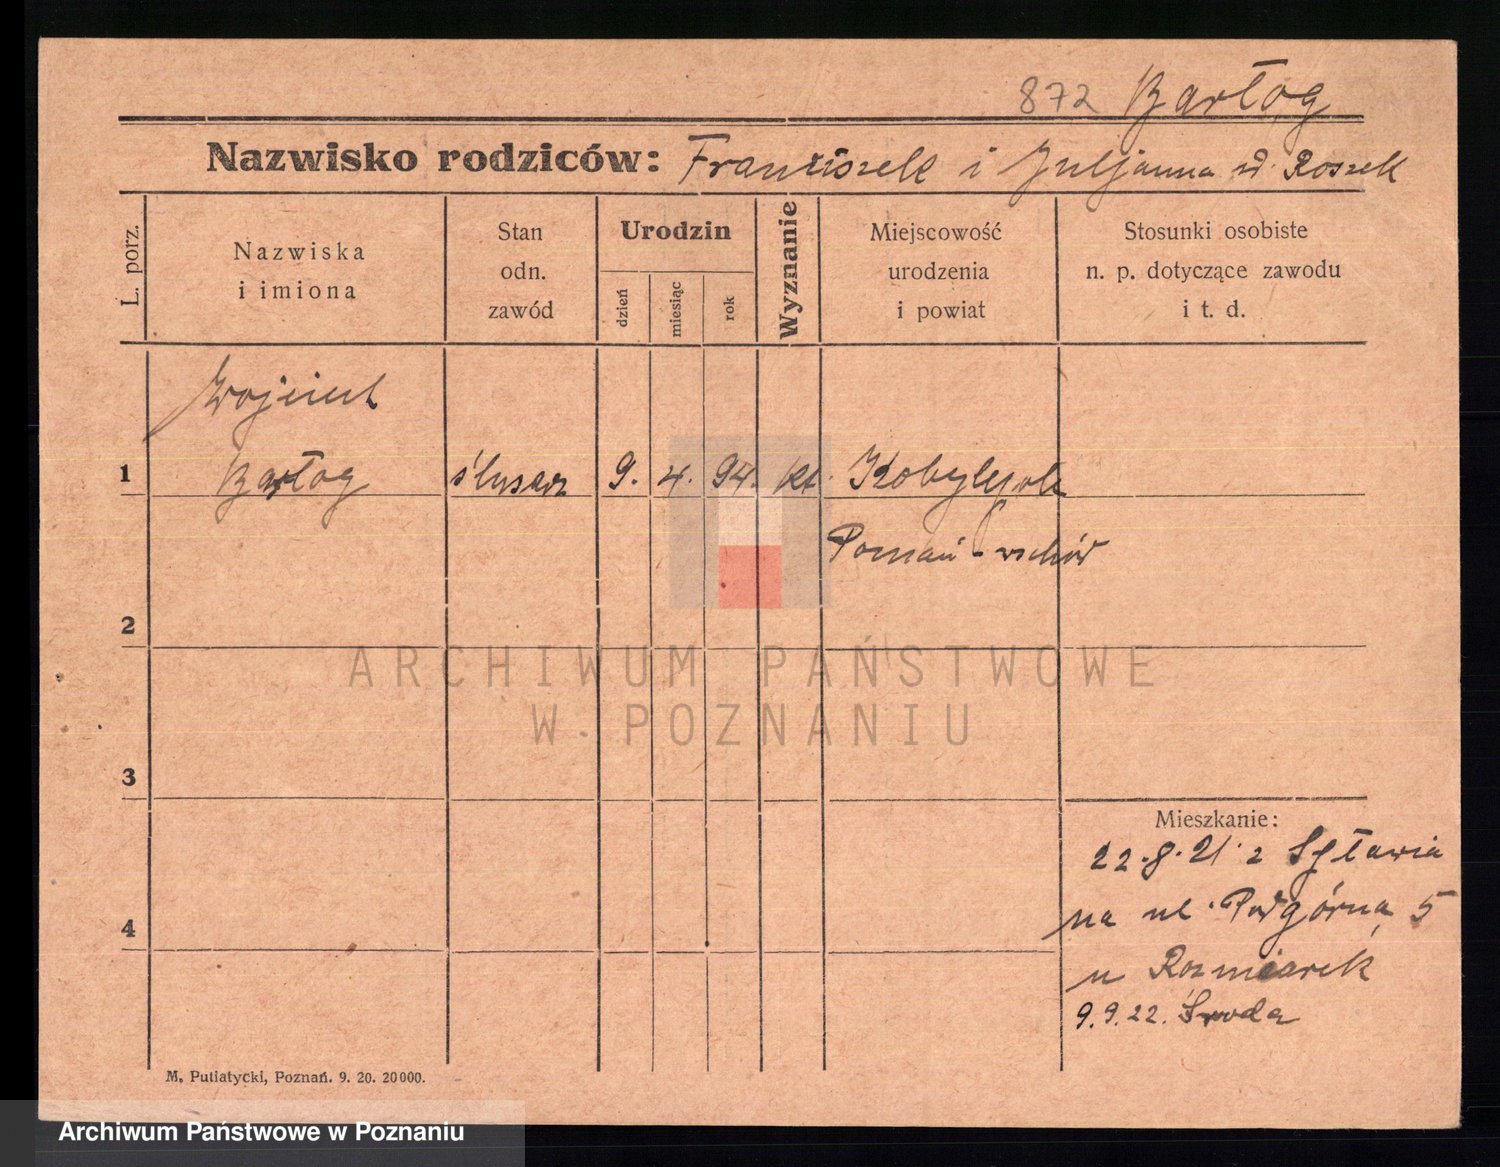 872 Barłog
Nazwisko rodziców: Franciszek i Juljanna zd Roszek
L. porz.
Nazwiska
i imiona
Stan
odn.
zawód
Urodzin
dzień
miesiąc
rok
Wyznanie
Miejscowość
urodzenia
i powiat
Stosunki osobiste
n. p. dotyczące zawodu
i t. d.
Wojciech
1 Barłog ślusarz 9. 4. 94. kt. Kobylepole
Poznań-wschód
2
3
4
Mieszkanie:
22.8.21 z Spławia
na ul. Podgórna 5
u Rozmiarek
9.9.22. Środa
M. Putiatycki, Poznań. 9. 20. 20000.
ARCHIWUM PAŃSTWOWE
W POZNANIU
Archiwum Państwowe w Poznaniu